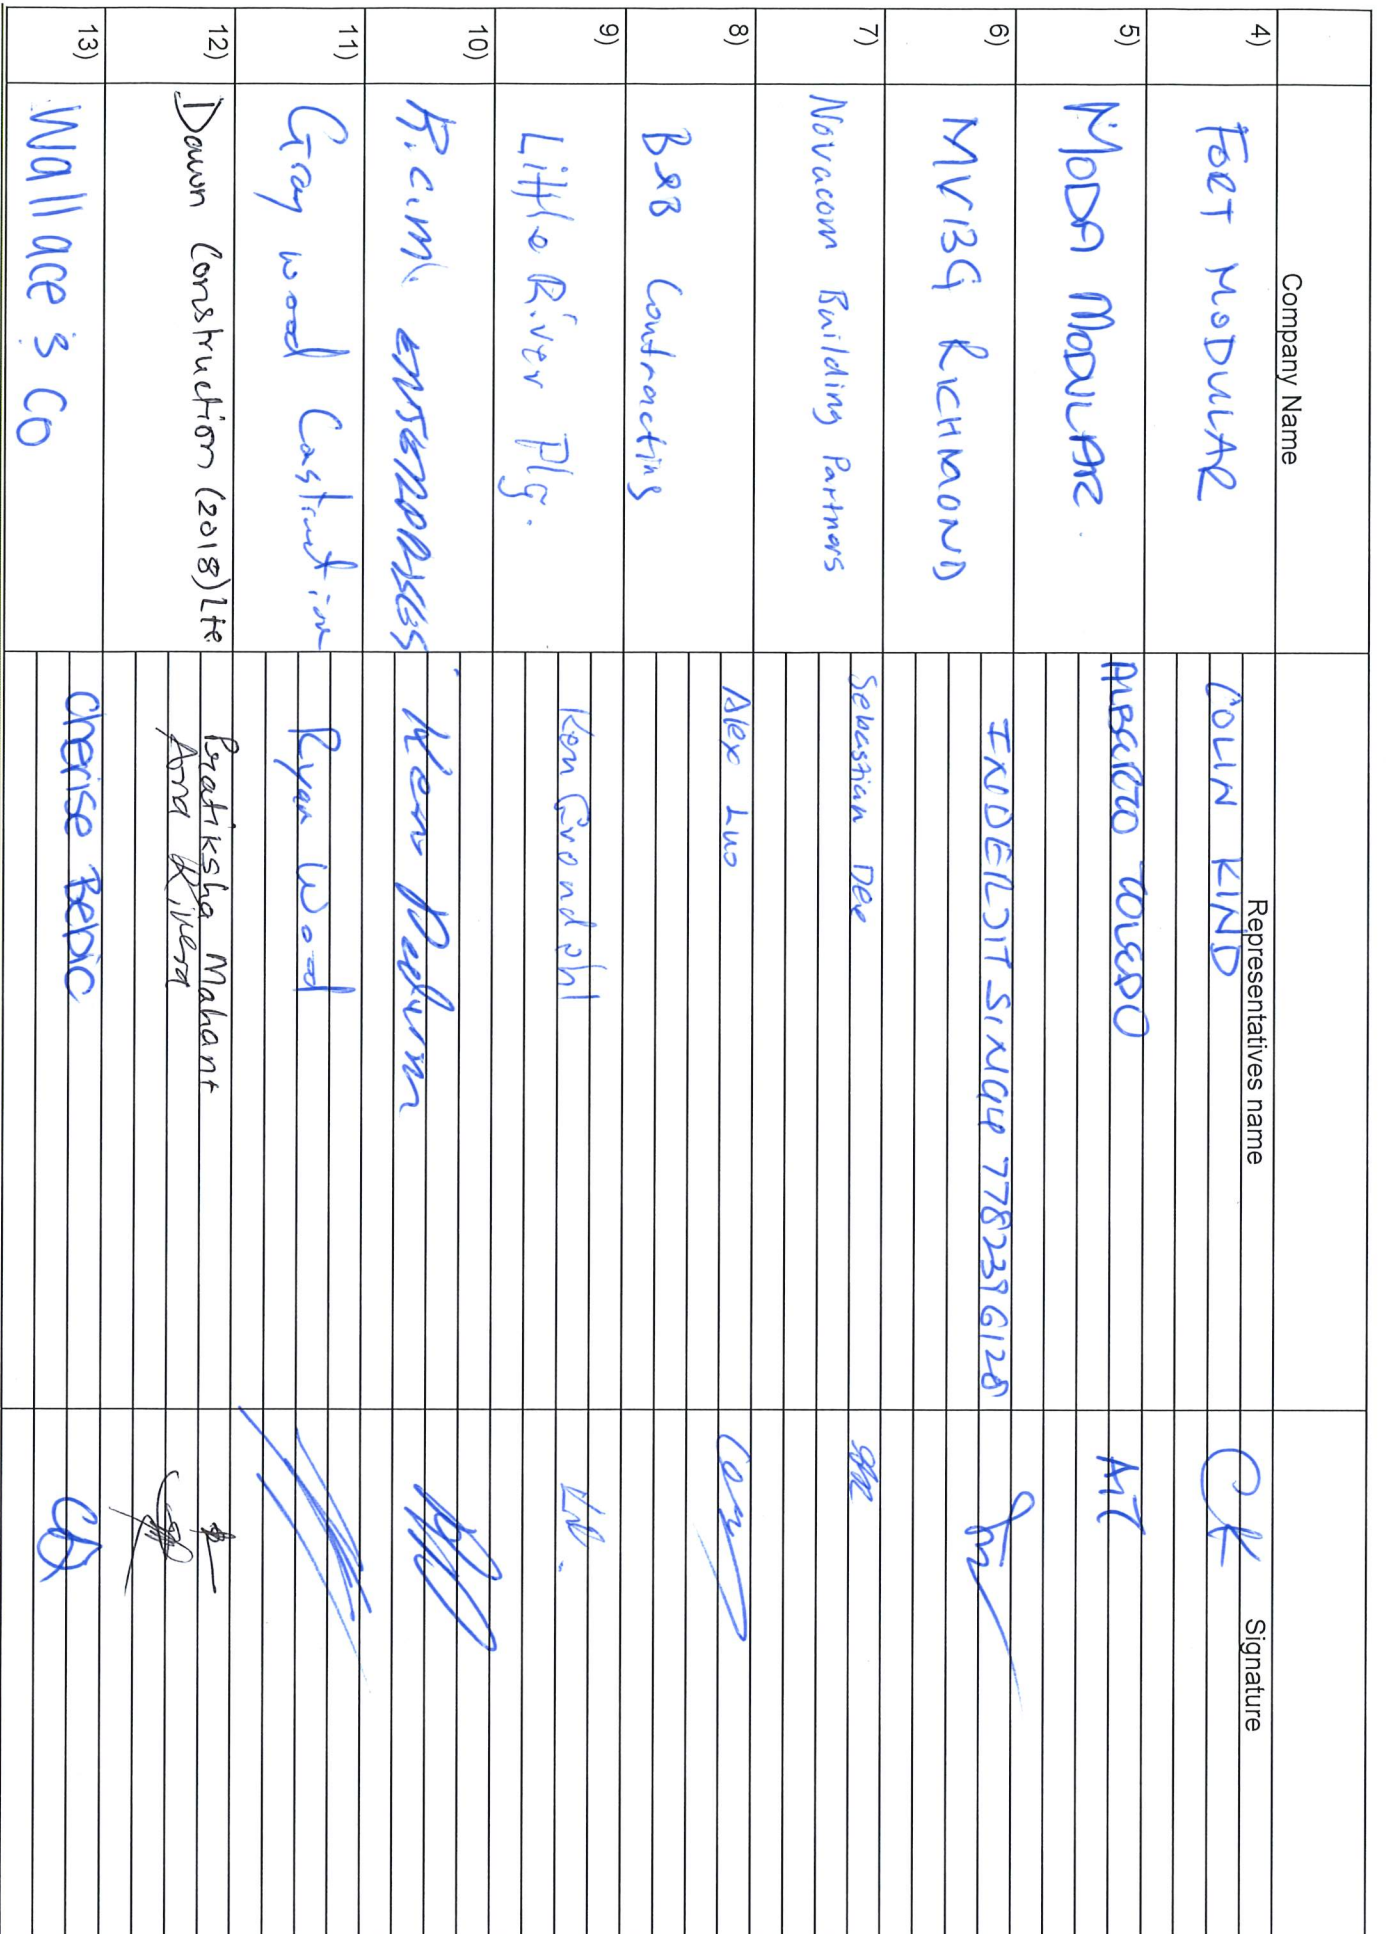 Company Name Representatives name Signature
4) FORT MODULAR COLIN KIND CK
5) MODA MODULAR. ALBERTO TOLEDO AT
6) MVBG RICHMOND INDERJIT SINGH 7782396128
7) Novacom Building Partners Sebastian Dee
8) B&B Contracting Alex Luo
9) Little River Plg. Ken Grondahl
10) ENTERPRISES Ken
11) Graywood Ryan Wood
12) Dawn Construction (2018) Lte. Pratiksha Mahant
Ana Rivera
13) Wallace & Co Cherise Bebic